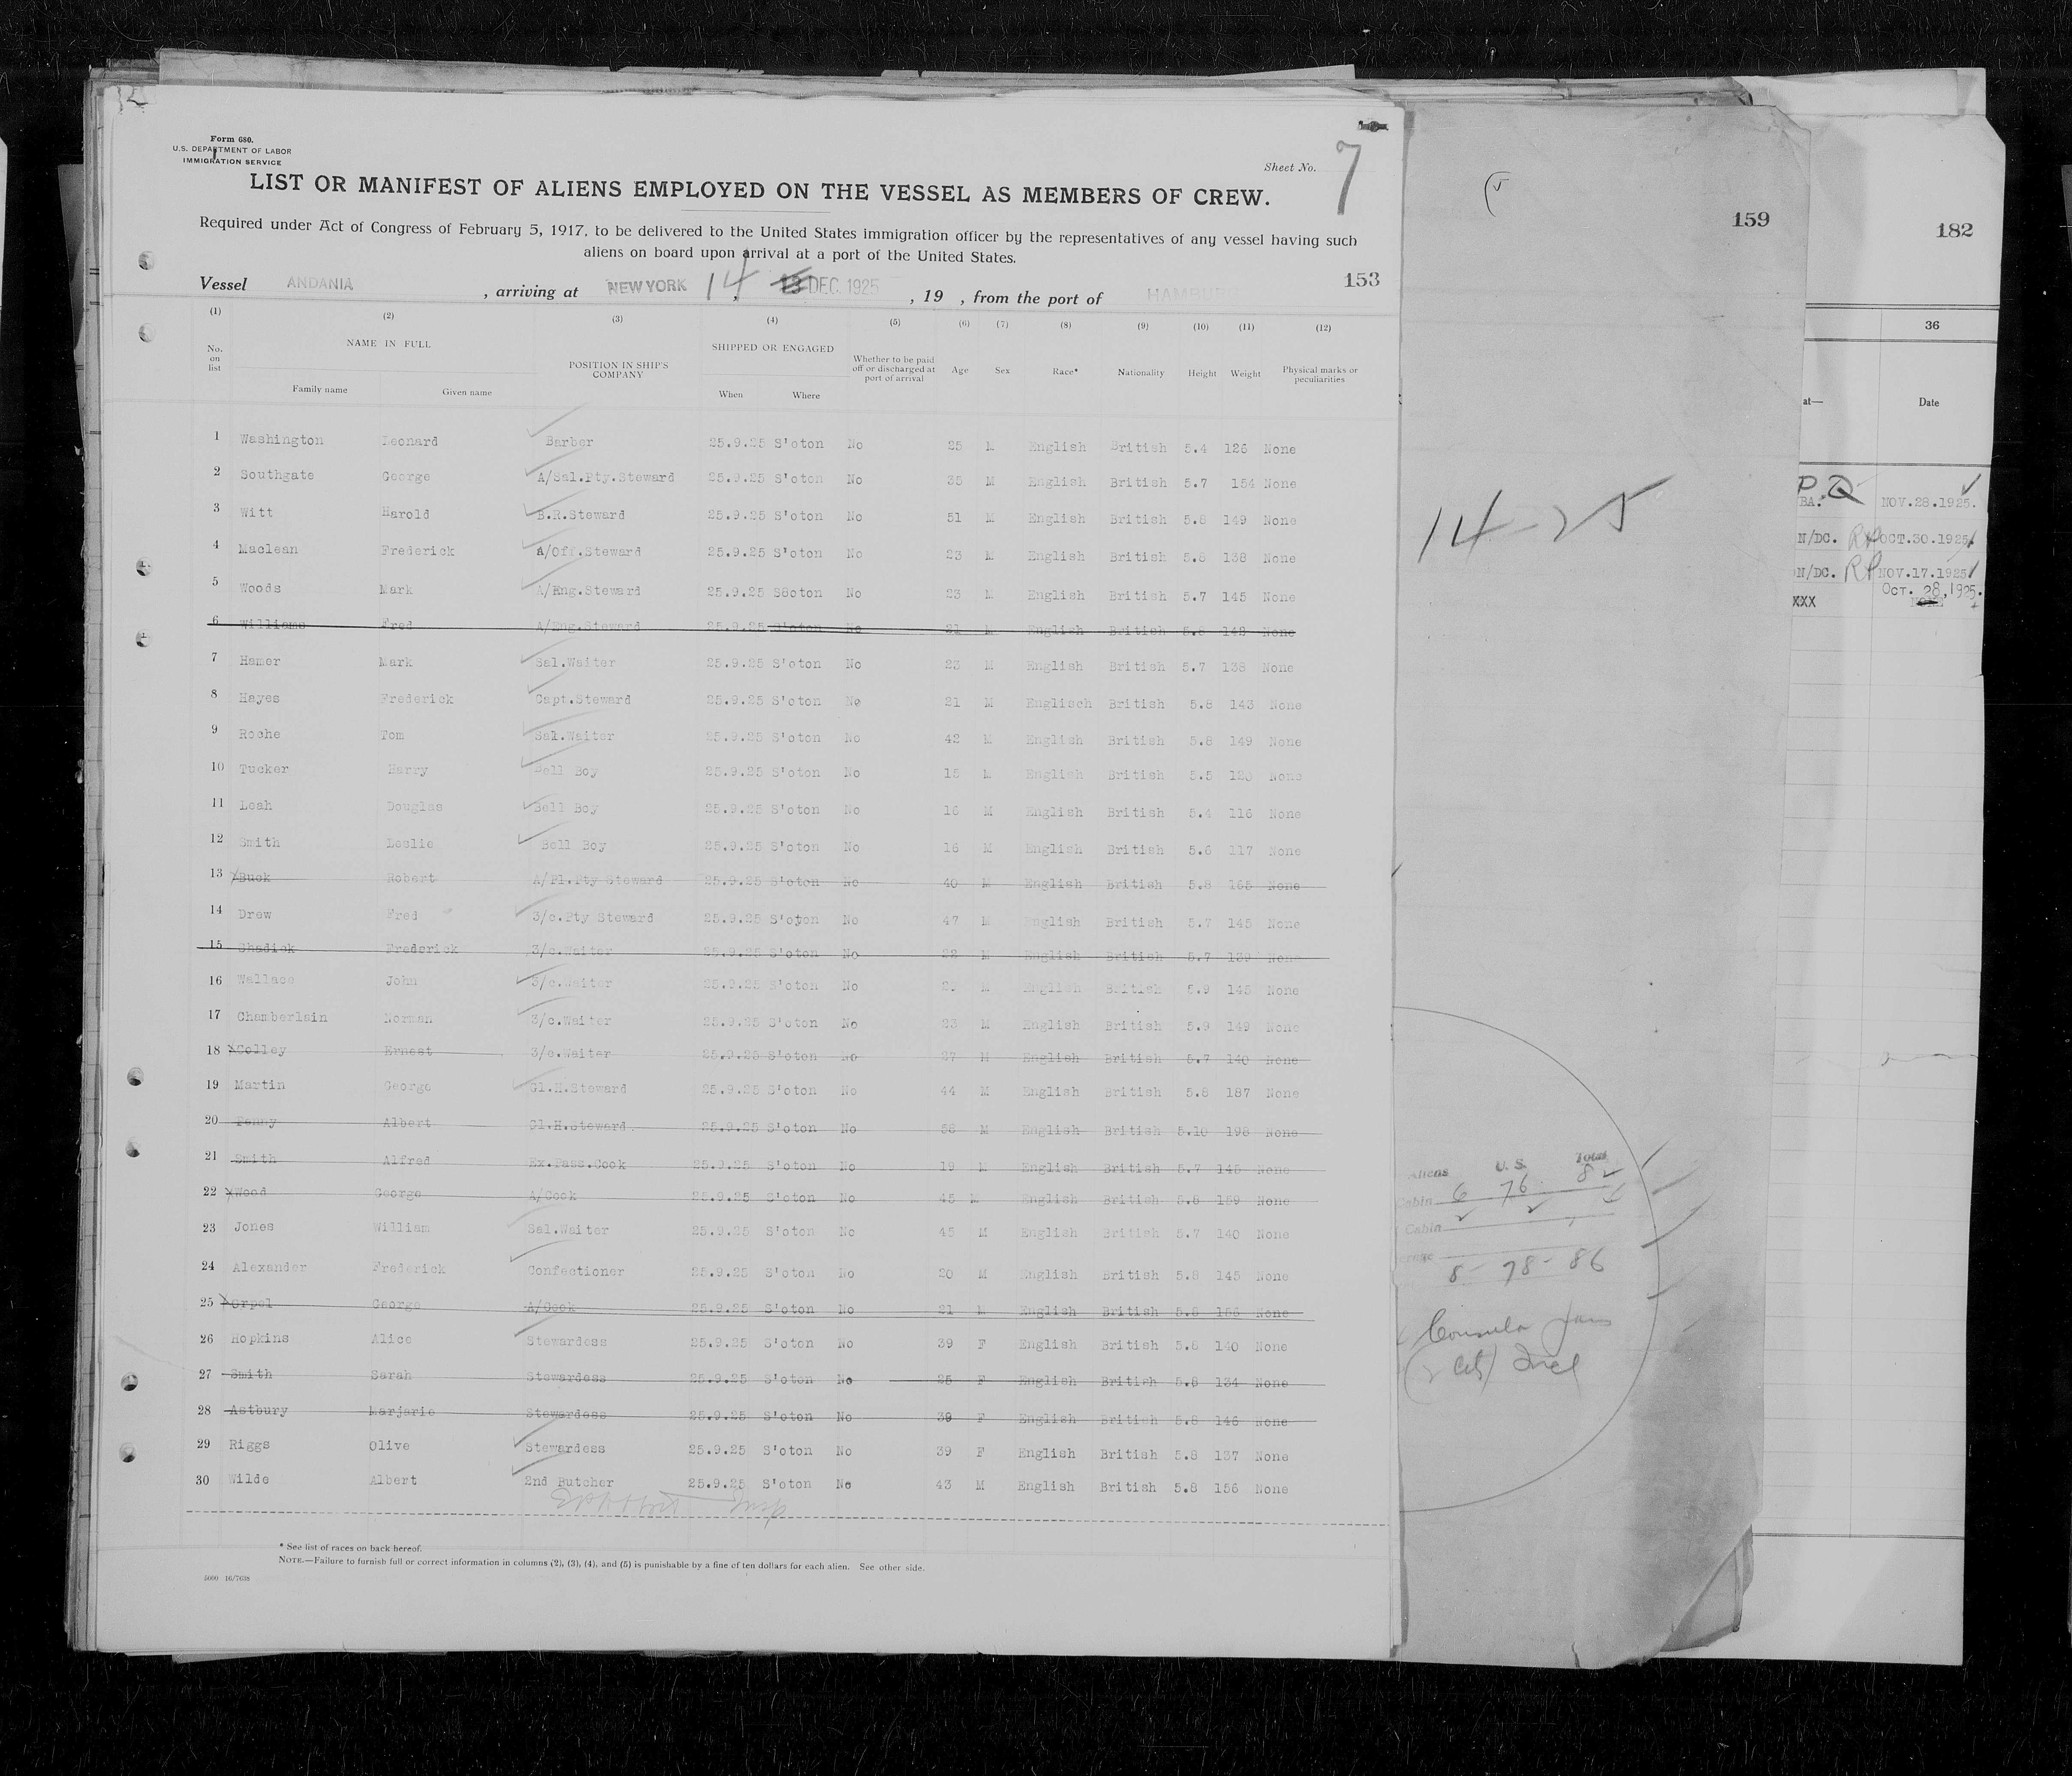 Form 680.
U.S. DEPARTMENT OF LABOR
IMMIGRATION SERVICE
Sheet No. 7
LIST OR MANIFEST OF ALIENS EMPLOYED ON THE VESSEL AS MEMBERS OF CREW.
Required under Act of Congress of February 5, 1917, to be delivered to the United States immigration officer by the representatives of any vessel having such
aliens on board upon arrival at a port of the United States.
153
Vessel ANDANIA , arriving at NEW YORK 14 13 DEC. 1925 , 19 , from the port of HAMBURG
(1) (2) (3) (4) (5) (6) (7) (8) (9) (10) (11) (12)
No. on list NAME IN FULL Family name Given name POSITION IN SHIP'S COMPANY SHIPPED OR ENGAGED When Where Whether to be paid off or discharged at port of arrival Age Sex Race* Nationality Height Weight Physical marks or peculiarities
1 Washington Leonard Barber 25.9.25 S'oton No 25 M English British 5.4 126 None
2 Southgate George A/Sal.Pty.Steward 25.9.25 S'oton No 35 M English British 5.7 154 None
3 Witt Harold B.R.Steward 25.9.25 S'oton No 51 M English British 5.8 149 None
4 Maclean Frederick A/Off.Steward 25.9.25 S'oton No 23 M English British 5.8 138 None
5 Woods Mark A/Eng.Steward 25.9.25 S8oton No 23 M English British 5.7 145 None
6 Williams Fred A/Eng.Steward 25.9.25 S'oton No 21 M English British 5.8 142 None
7 Hamer Mark Sal.Waiter 25.9.25 S'oton No 23 M English British 5.7 138 None
8 Hayes Frederick Capt.Steward 25.9.25 S'oton No 21 M Englisch British 5.8 143 None
9 Roche Tom Sal.Waiter 25.9.25 S'oton No 42 M English British 5.8 149 None
10 Tucker Harry Bell Boy 25.9.25 S'oton No 16 M English British 5.5 120 None
11 Leah Douglas Bell Boy 25.9.25 S'oton No 16 M English British 5.4 116 None
12 Smith Leslie Bell Boy 25.9.25 S'oton No 16 M English British 5.6 117 None
13 Buck Robert A/Pl.Pty Steward 25.9.25 S'oton No 40 M English British 5.8 165 None
14 Drew Fred 3/c.Pty Steward 25.9.25 S'oton No 47 M English British 5.7 145 None
15 Shadick Frederick 3/c.Waiter 25.9.25 S'oton No 22 M English British 5.7 139 None
16 Wallace John 3/c.Waiter 25.9.25 S'oton No M English British 5.9 145 None
17 Chamberlain Norman 3/c.Waiter 25.9.25 S'oton No 23 M English British 5.9 149 None
18 Colley Ernest 3/c.Waiter 25.9.25 S'oton No 27 M English British 5.7 140 None
19 Martin George Gl.H.Steward 25.9.25 S'oton No 44 M English British 5.8 187 None
20 Penny Albert Gl.H.Steward. 25.9.25 S'oton No 58 M English British 5.10 198 None
21 Smith Alfred Ex.Pass.Cook 25.9.25 S'oton No 19 M English British 5.7 145 None
22 Wood George A/Cook 25.9.25 S'oton No 45 M English British 5.8 159 None
23 Jones William Sal.Waiter 25.9.25 S'oton No 45 M English British 5.7 140 None
24 Alexander Frederick Confectioner 25.9.25 S'oton No 20 M English British 5.8 145 None
25 Orpel George A/Cook 25.9.25 S'oton No 21 M English British 5.8 156 None
26 Hopkins Alice Stewardess 25.9.25 S'oton No 39 F English British 5.8 140 None
27 Smith Sarah Stewardess 25.9.25 S'oton No 28 F English British 5.8 134 None
28 Astbury Marjarie Stewardess 25.9.25 S'oton No 39 F English British 5.8 146 None
29 Riggs Olive Stewardess 25.9.25 S'oton No 39 F English British 5.8 137 None
30 Wilde Albert 2nd Butcher 25.9.25 S'oton No 43 M English British 5.8 156 None
* See list of races on back hereof.
NOTE.—Failure to furnish full or correct information in columns (2), (3), (4), and (5) is punishable by a fine of ten dollars for each alien. See other side.
5000 16/7638
159
14-25
Aliens U.S. Total
Cabin 6 76 82
Cabin 2 2
8 - 78 - 86
182
36
at— Date
P.D
BA. NOV.28.1925.
N/DC. RP OCT.30.1925
N/DC. RP NOV.17.1925
OCT. 28, 1925.
XXX NONE